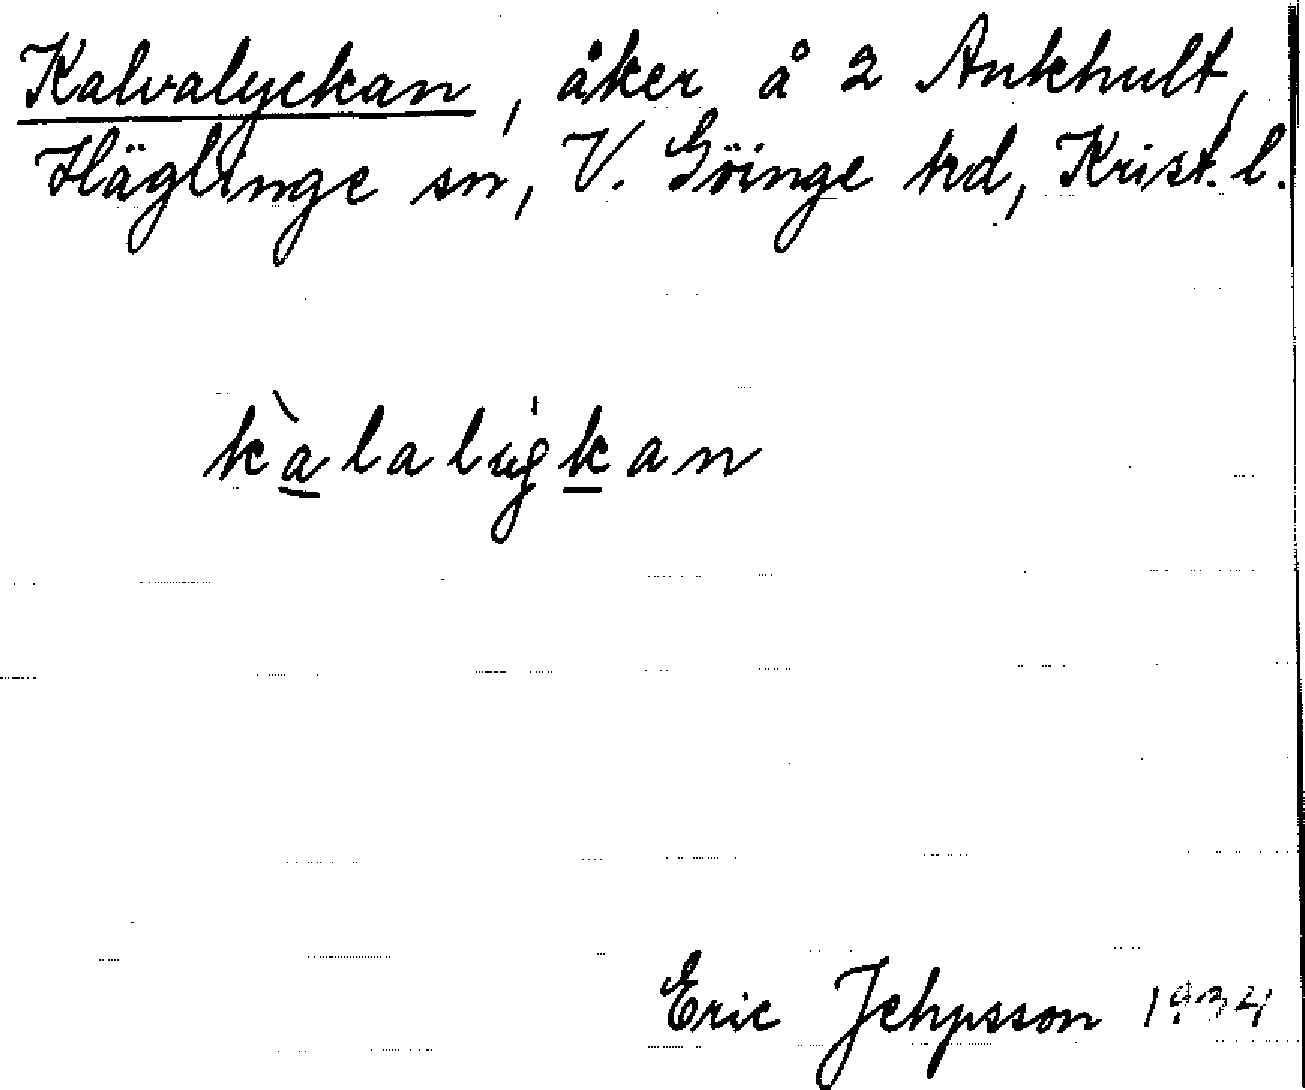 Kalvalyckan, åker å 2 Ankhult,
Häglinge sn, V. Göinge hd, Krist. l.
kàlalygkan
Eric Jehpsson 1934